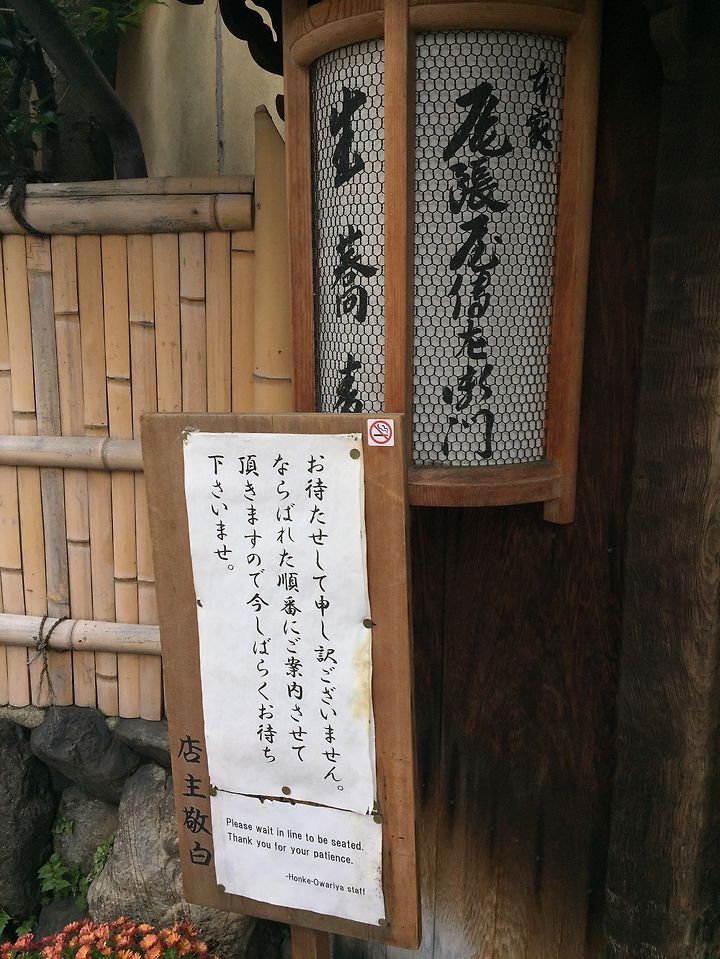 本家
尾張屋傳左衛門
生蕎麦
お待たせして申し訳ございません。
ならばれた順番にご案内させて
頂きますので今しばらくお待ち
下さいませ。
店主敬白
Please wait in line to be seated.
Thank you for your patience.
-Honke-Owariya staff